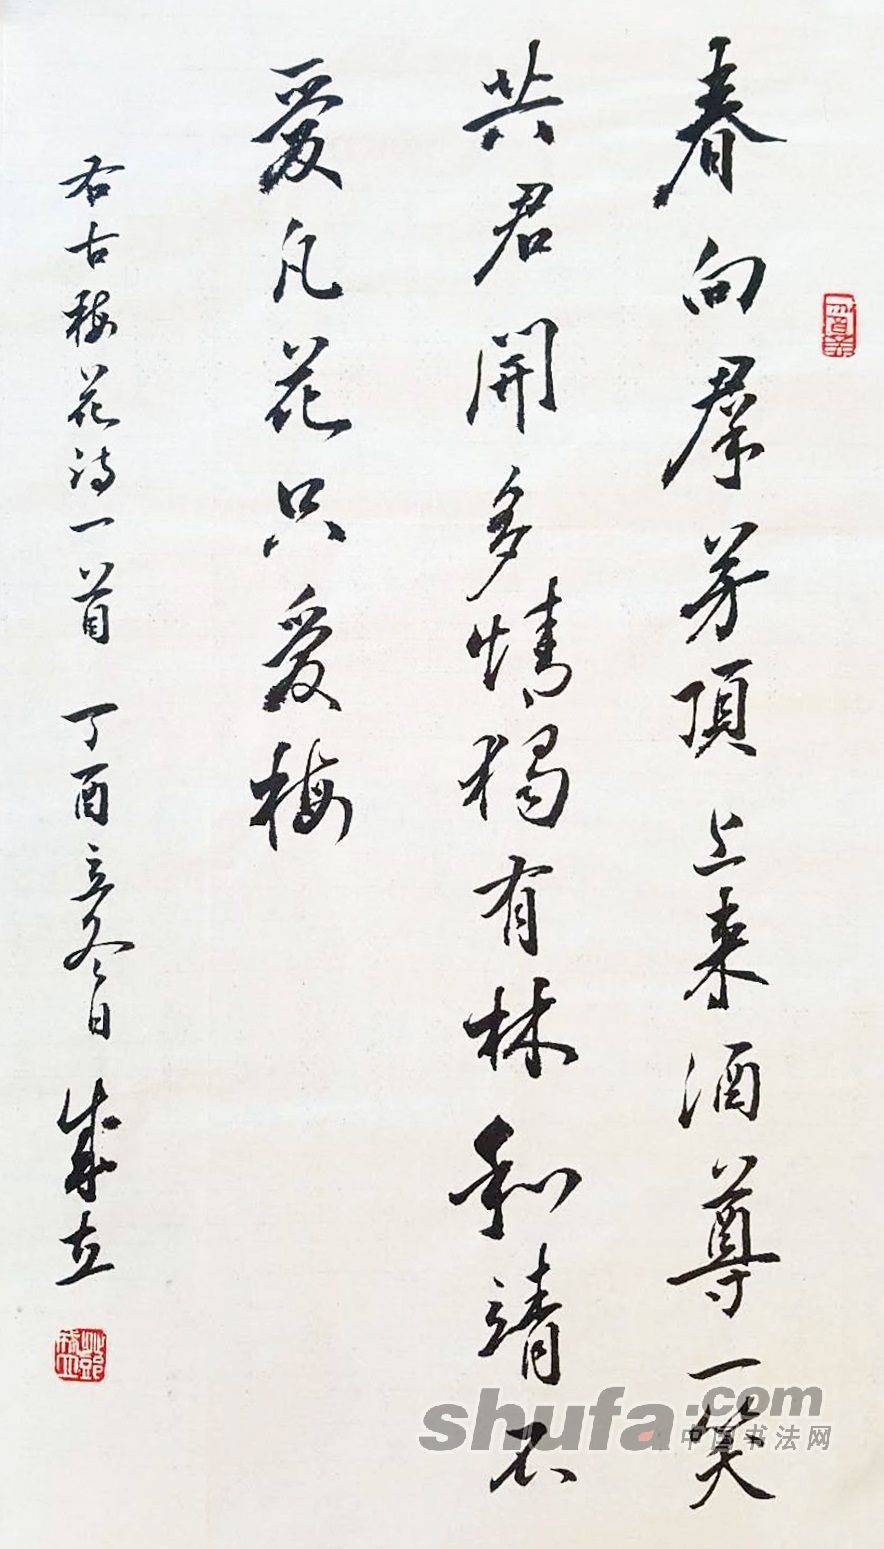 春向群芳頂上来酒尊一笑
共君開多情獨有林和靖不
愛凡花只愛梅
右古梅花詩一首 丁酉立冬日 成立
shufa.com
中国书法网